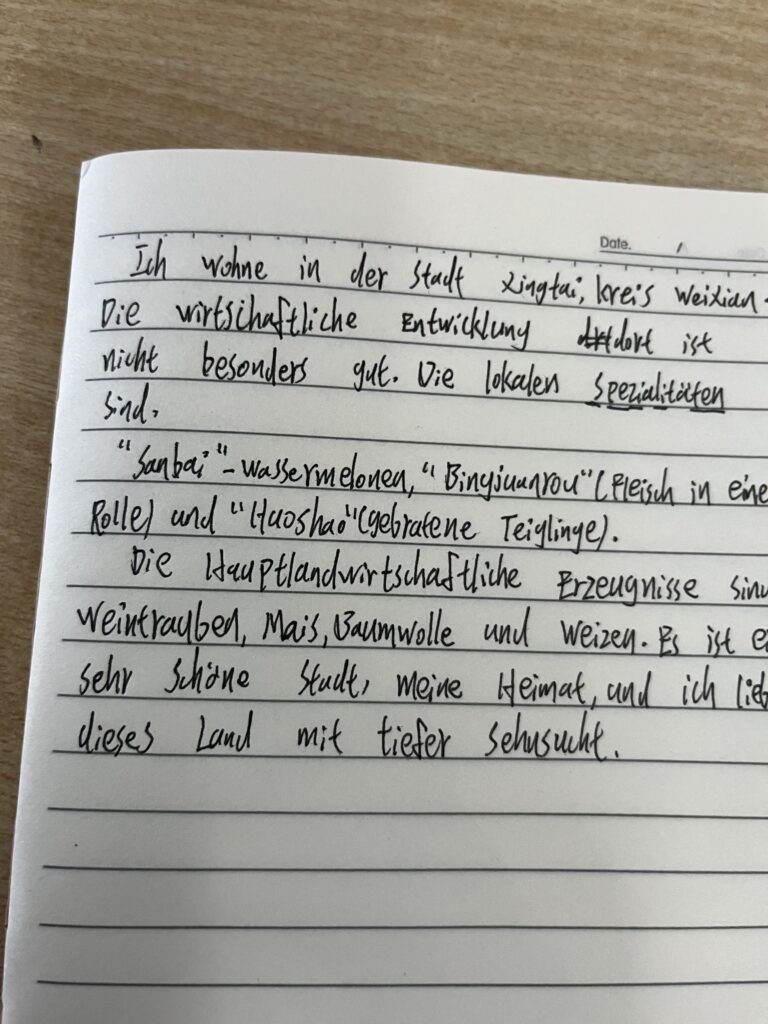 Date.
Ich wohne in der Stadt Xingtai, Kreis Weixian.
Die wirtschaftliche Entwicklung dort ist
nicht besonders gut. Die lokalen Spezialitäten
sind.
"Sanbai"-Wassermelonen, "Bingjuanrou" (Fleisch in eine
Rolle) und "Huoshao" (gebratene Teiglinge).
Die Hauptlandwirtschaftliche Erzeugnisse sind
Weintrauben, Mais, Baumwolle und Weizen. Es ist
sehr schöne Stadt, meine Heimat, und ich
dieses Land mit tiefer Sehnsucht.